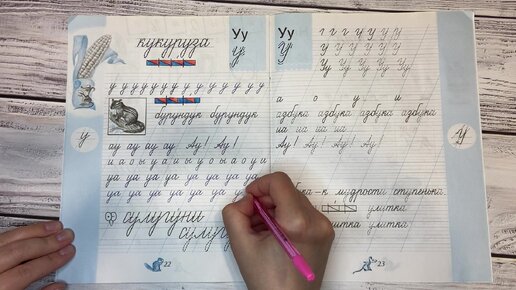 кукуруза
Уу
у
у у у у у у у у у у у у у у у
бурундук бурундук
ау ау ау ау Ау! Ау!
и а о ы у а и ы у о ы а о у и
уа уа уа уа уа уа уа уа
уа уа уа уа уа уа уа
сулугуни
22
Уу
у
г г г У У У У
У У У У У
Уу Уу Уу Уу Уу
а о у и
азбука азбука азбука азбука
иа иа иа иа
Ау! Ау! Ау! Ау!
к мудрости ступенька.
улитка
улитка
23
у
У